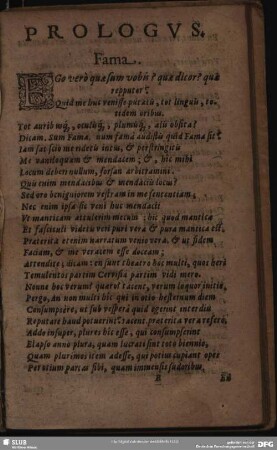 PROLOGVS.
Fama.
EGo verò quæ sum vobis? quæ dicor? quæ
repputor?
Quid me huc venisse putatis, tot linguis, to-
tidem oribus.
Tot auribusq́, oculisq́, plumisq́, aliis obsita?
Dicam. Sum Fama. num famâ audistis quid Fama sit?
Iam sat scio mendetis intus, &
Me vaniloquam & mendacem; &, hic mihi
Locum deberi nullum, forsan arbitramini.
Quis enim mendacibus & mendaciis locus?
Sed vos benigniorem vestram in me sententiam,
Nec enim ipsa sic veni huc mendacii
Vt manticam attulerim mecum; hic quod mantica
Et fasciculi videtis veri pura vera & pura mantica est,
Præterita etenim narratum venio vera, & ut fidem
Faciam, & me veracem esse doceam;
Attendite; dicam
Temulentos partim Cervisiâ partim vidi mero.
Nonne hoc verum? quare? tacent, verum loquor initio,
Pergo, an non multi hic qui in otio hesternum diem
Consumpsère, ut sub vesperâ quid egerint interdiu
Reputare haud potuerint? tacent. præterita vera refero,
Addo insuper, plures hic esse, qui consumpserint
Elapso anno plura, quam lucrati sint toto biennio,
Quam plurimos item adesse, qui potius cupiant opes
Per otium partas sibi, quam immensis sudoribus,
Ed
SLUB
DFG